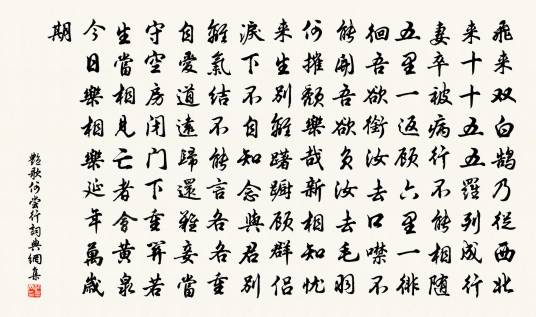 飛来双白鹄乃從西北
来十十五五羅列成行
妻卒被病行不能相随
五里一返顧六里一徘
徊吾欲銜汝去口噤不
能開吾欲負汝去毛羽
何摧颓樂哉新相知忧
来生别離躇蹰顧群侣
淚下不自知念與君别
離氣結不能言各各重
自愛道遠歸還難妾當
守空房閉門下重關若
生當相見亡者會黄泉
今日樂相樂延年萬歲
期
艷歌何嘗行詞典網集